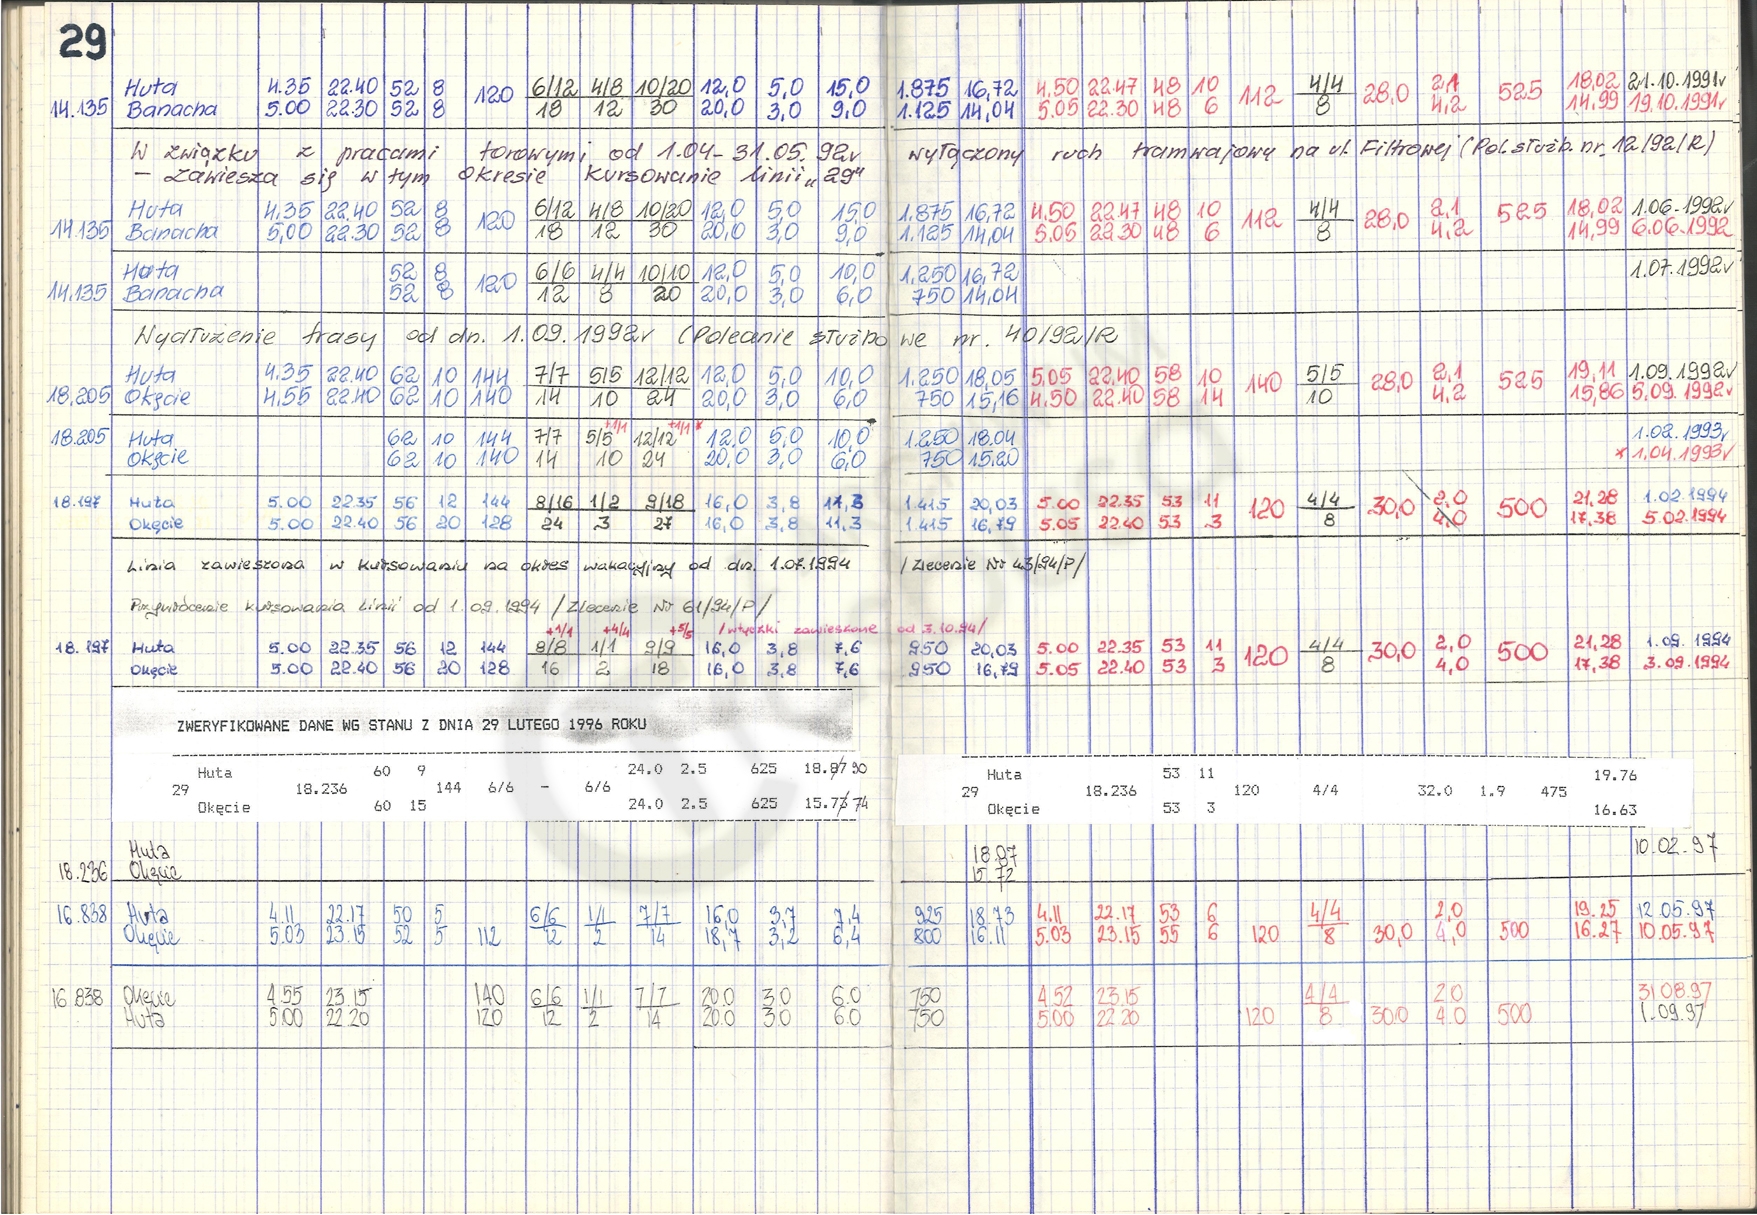 29
Huta 4.35 22.40 52 8 120 6/12 4/8 10/20 12,0 5,0 15,0 1.875 16,72 4.50 22.47 48 10 112 4/4 28,0 2,1 525 18,02 21.10.1991r
14.135 Banacha 5.00 22.30 52 8 18 12 30 20,0 3,0 9,0 1.125 14,04 5.05 22.30 48 6 8 4,2 14,99 19.10.1991r
W związku z pracami torowymi od 1.04-31.05.92r wyłączony ruch tramwajowy na ul. Filtrowej (Pol. służb. nr. 12/92/R)
- zawiesza się w tym okresie kursowanie linii "29"
Huta 4.35 22.40 52 8 120 6/12 4/8 10/20 12,0 5,0 15,0 1.875 16,72 4.50 22.47 48 10 112 4/4 28,0 2,1 525 18,02 1.06.1992r
14.135 Banacha 5,00 22.30 52 8 18 12 30 20,0 3,0 9,0 1.125 14,04 5.05 22.30 48 6 8 4,2 14,99 6.06.1992
Huta 52 8 120 6/6 4/4 10/10 12,0 5,0 10,0 1,250 16,72 1.07.1992r
14.135 Banacha 52 8 12 8 20 20,0 3,0 6,0 750 14,04
Wydłużenie trasy od dn. 1.09.1992r (Polecenie służbowe nr. 40/92/R
Huta 4.35 22.40 62 10 144 7/7 5/5 12/12 12,0 5,0 10,0 1.250 18,05 5.05 22.40 58 10 140 5/5 28,0 2,1 525 19,11 1.09.1992r
18.205 Okęcie 4.55 22.40 62 10 140 14 10 24 20,0 3,0 6,0 750 15,16 4.50 22.40 58 14 10 4,2 15,86 5.09.1992r
+1/1 +1/1 *
18.205 Huta 62 10 144 7/7 5/5 12/12 12,0 5,0 10,0 1.250 18.04 1.02.1993r
Okęcie 62 10 140 14 10 24 20,0 3,0 6,0 750 15.20 * 1.04.1993r
18.197 Huta 5.00 22.35 56 12 144 8/16 1/2 9/18 16,0 3,8 11,3 1.415 20,03 5.00 22.35 53 11 120 4/4 30,0 2,0 500 21,28 1.02.1994
Okęcie 5.00 22.40 56 20 128 24 3 27 16,0 3,8 11,3 1.415 16,79 5.05 22.40 53 3 8 4,0 17,38 5.02.1994
Linia zawieszona w kursowaniu na okres wakacyjny od dn. 1.07.1994 /Zlecenie Nr 43/94/P/
Przywrócenie kursowania linii od 1.09.1994 /Zlecenie Nr 61/94/P/
+1/1 +4/4 +5/5 /wtyczki zawieszone od 3.10.94/
18.197 Huta 5.00 22.35 56 12 144 8/8 1/1 9/9 16,0 3,8 7,6 950 20,03 5.00 22.35 53 11 120 4/4 30,0 2,0 500 21,28 1.09.1994
Okęcie 5.00 22.40 56 20 128 16 2 18 16,0 3,8 7,6 950 16,79 5.05 22.40 53 3 8 4,0 17,38 3.09.1994
ZWERYFIKOWANE DANE WG STANU Z DNIA 29 LUTEGO 1996 ROKU
Huta 60 9 24.0 2.5 625 18.87 90 Huta 53 11 19.76
29 18.236 144 6/6 - 6/6 29 18.236 120 4/4 32.0 1.9 475
Okęcie 60 15 24.0 2.5 625 15.73 74 Okęcie 53 3 16.63
Huta 18.87 10.02.97
18.236 Okęcie 15 72
16.838 Huta 4.11 22.17 50 5 6/6 1/1 7/7 16,0 3,7 7,4 925 18.73 4.11 22.17 53 6 4/4 2,0 19.25 12.05.97
Okęcie 5.03 23.15 52 5 112 12 2 14 18,7 3,2 6,4 800 16.11 5.03 23.15 55 6 120 8 30,0 4,0 500 16.27 10.05.97
16 838 Okęcie 4.55 23.15 140 6/6 1/1 7/7 20.0 3.0 6.0 750 4.52 23.15 4/4 2.0 31.08.97
Huta 5.00 22.20 120 12 2 14 20.0 3.0 6.0 750 5.00 22.20 120 8 30.0 4.0 500 1.09.97